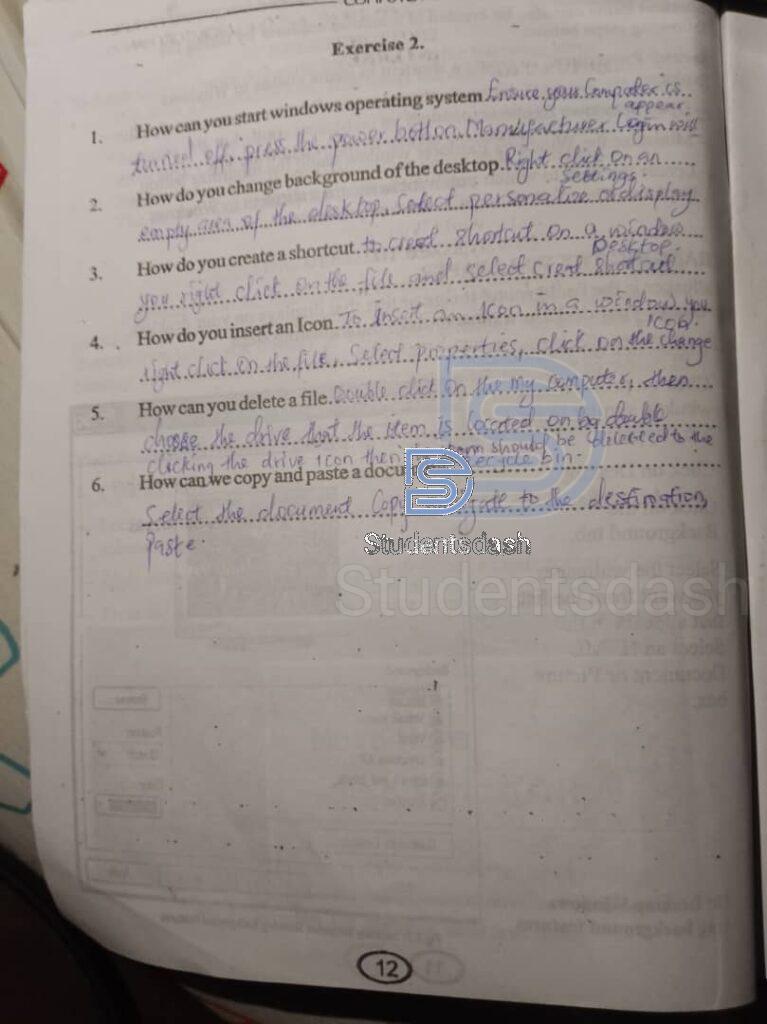 Exercise 2.
1. How can you start windows operating system Ensure your Computer is
appear
turned off. press the power botton. Manufacturer Login will
2. How do you change background of the desktop. Right click on an
Settings.
empty area of the desktop, Select personalize display
3. How do you create a shortcut. to creat shortcut on a window
Desktop.
you right click on the file and select creat shortcut
4. How do you insert an Icon. To Insert an Icon in a window you
Icon.
right click on the file, Select properties, click on the change
5. How can you delete a file. Double click on the my computer, then
choose the drive that the item is located on by double
clicking the drive icon then item should be deleted to the
6. How can we copy and paste a docu recycle bin.
Select the document Copy to the destination
Paste.
Studentsdash
Studentsdash
12